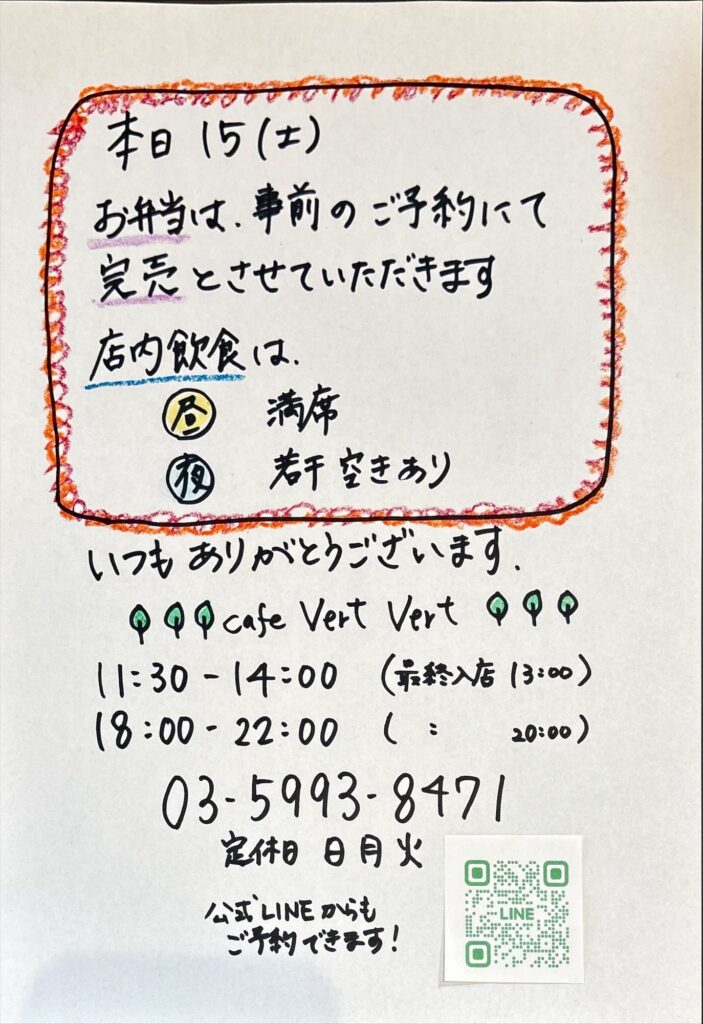 本日 15(土)
お弁当は、事前のご予約にて
完売とさせていただきます
店内飲食は、
昼 満席
夜 若干空きあり
いつもありがとうございます。
cafe Vert Vert
11:30-14:00 (最終入店 13:00)
18:00-22:00 ( : 20:00)
03-5993-8471
定休日 日月火
公式LINEからも
ご予約できます!
LINE